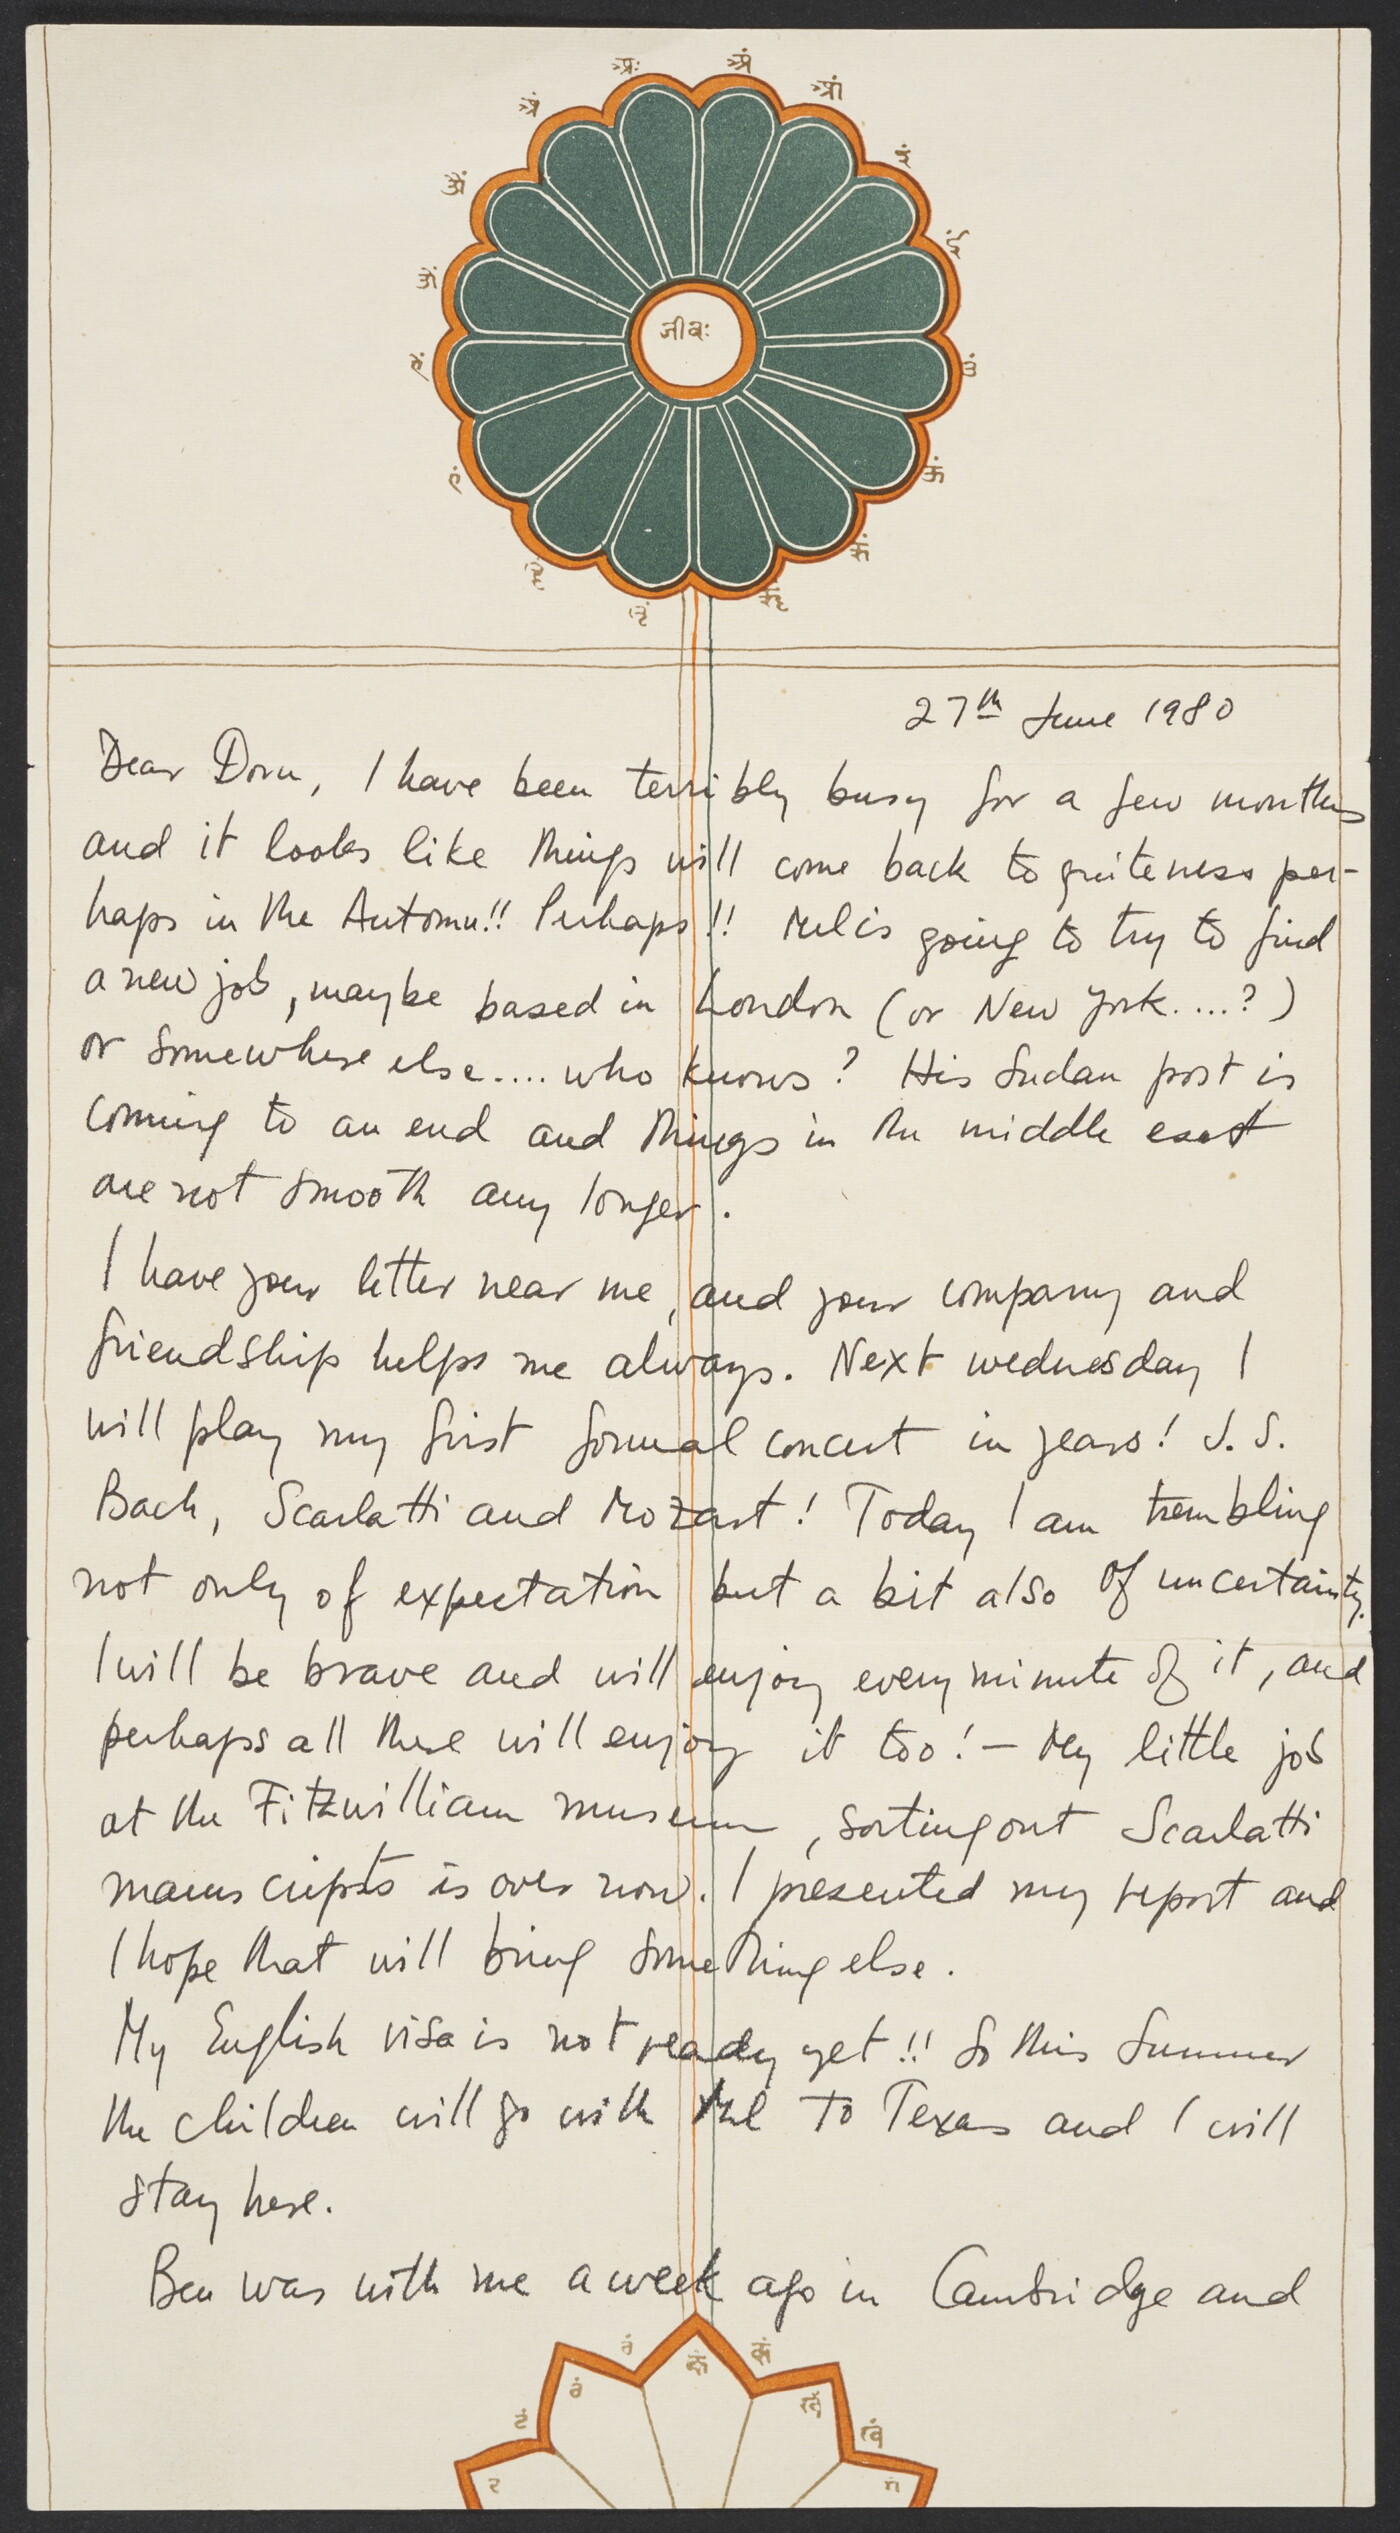 जीवः
27th June 1980
Dear Dorn, I have been terribly busy for a few months
and it looks like things will come back to quiteness per-
haps in the Automn!! Perhaps!! Mel is going to try to find
a new job, maybe based in London (or New York....?)
or somewhere else.... who knows? His Sudan post is
coming to an end and things in the middle east
are not smooth any longer.
I have your letter near me, and your company and
friendship helps me always. Next wednesday I
will play my first formal concert in years! J. S.
Bach, Scarlatti and Mozart! Today I am trembling
not only of expectation but a bit also of uncertainty.
I will be brave and will enjoy every minute of it, and
perhaps all there will enjoy it too! – My little job
at the Fitzwilliam museum, sorting out Scarlatti
manuscripts is over now. I presented my report and
I hope that will bring something else.
My English visa is not ready yet!! So this Summer
the children will go with Mel to Texas and I will
stay here.
Ben was with me a week ago in Cambridge and